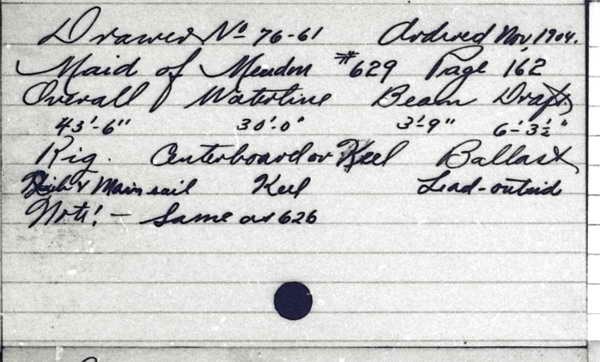 Drawer No 76-61 Ordered Nov, 1904.
Maid of Meadon #629 Page 162
Overall Waterline Beam Draft
43'-6" 30'-0" 3'-9" 6'-3½"
Rig. Centerboard or Keel Ballast
Jib & Mainsail Keel Lead-outside
Note! - Same as 626